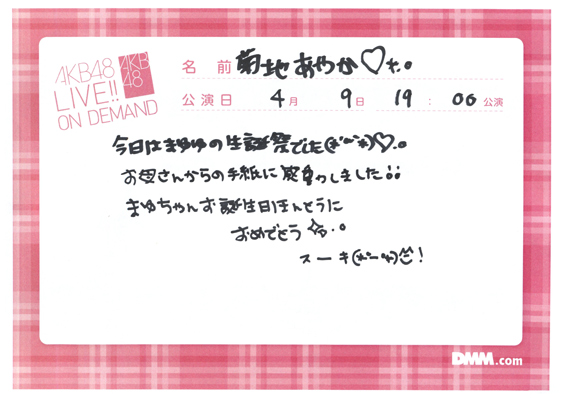 AKB48
LIVE!!
ON DEMAND
AKB
48
名 前 菊地あやか♡
公演日 4月 9日 19:00公演
今日はまゆゆの生誕祭でした(*´ー`*)♡
お母さんからの手紙に感動しました!!
まゆちゃんお誕生日ほんとうに
おめでとう
スーキ(*´ー`*)!
DMM.com